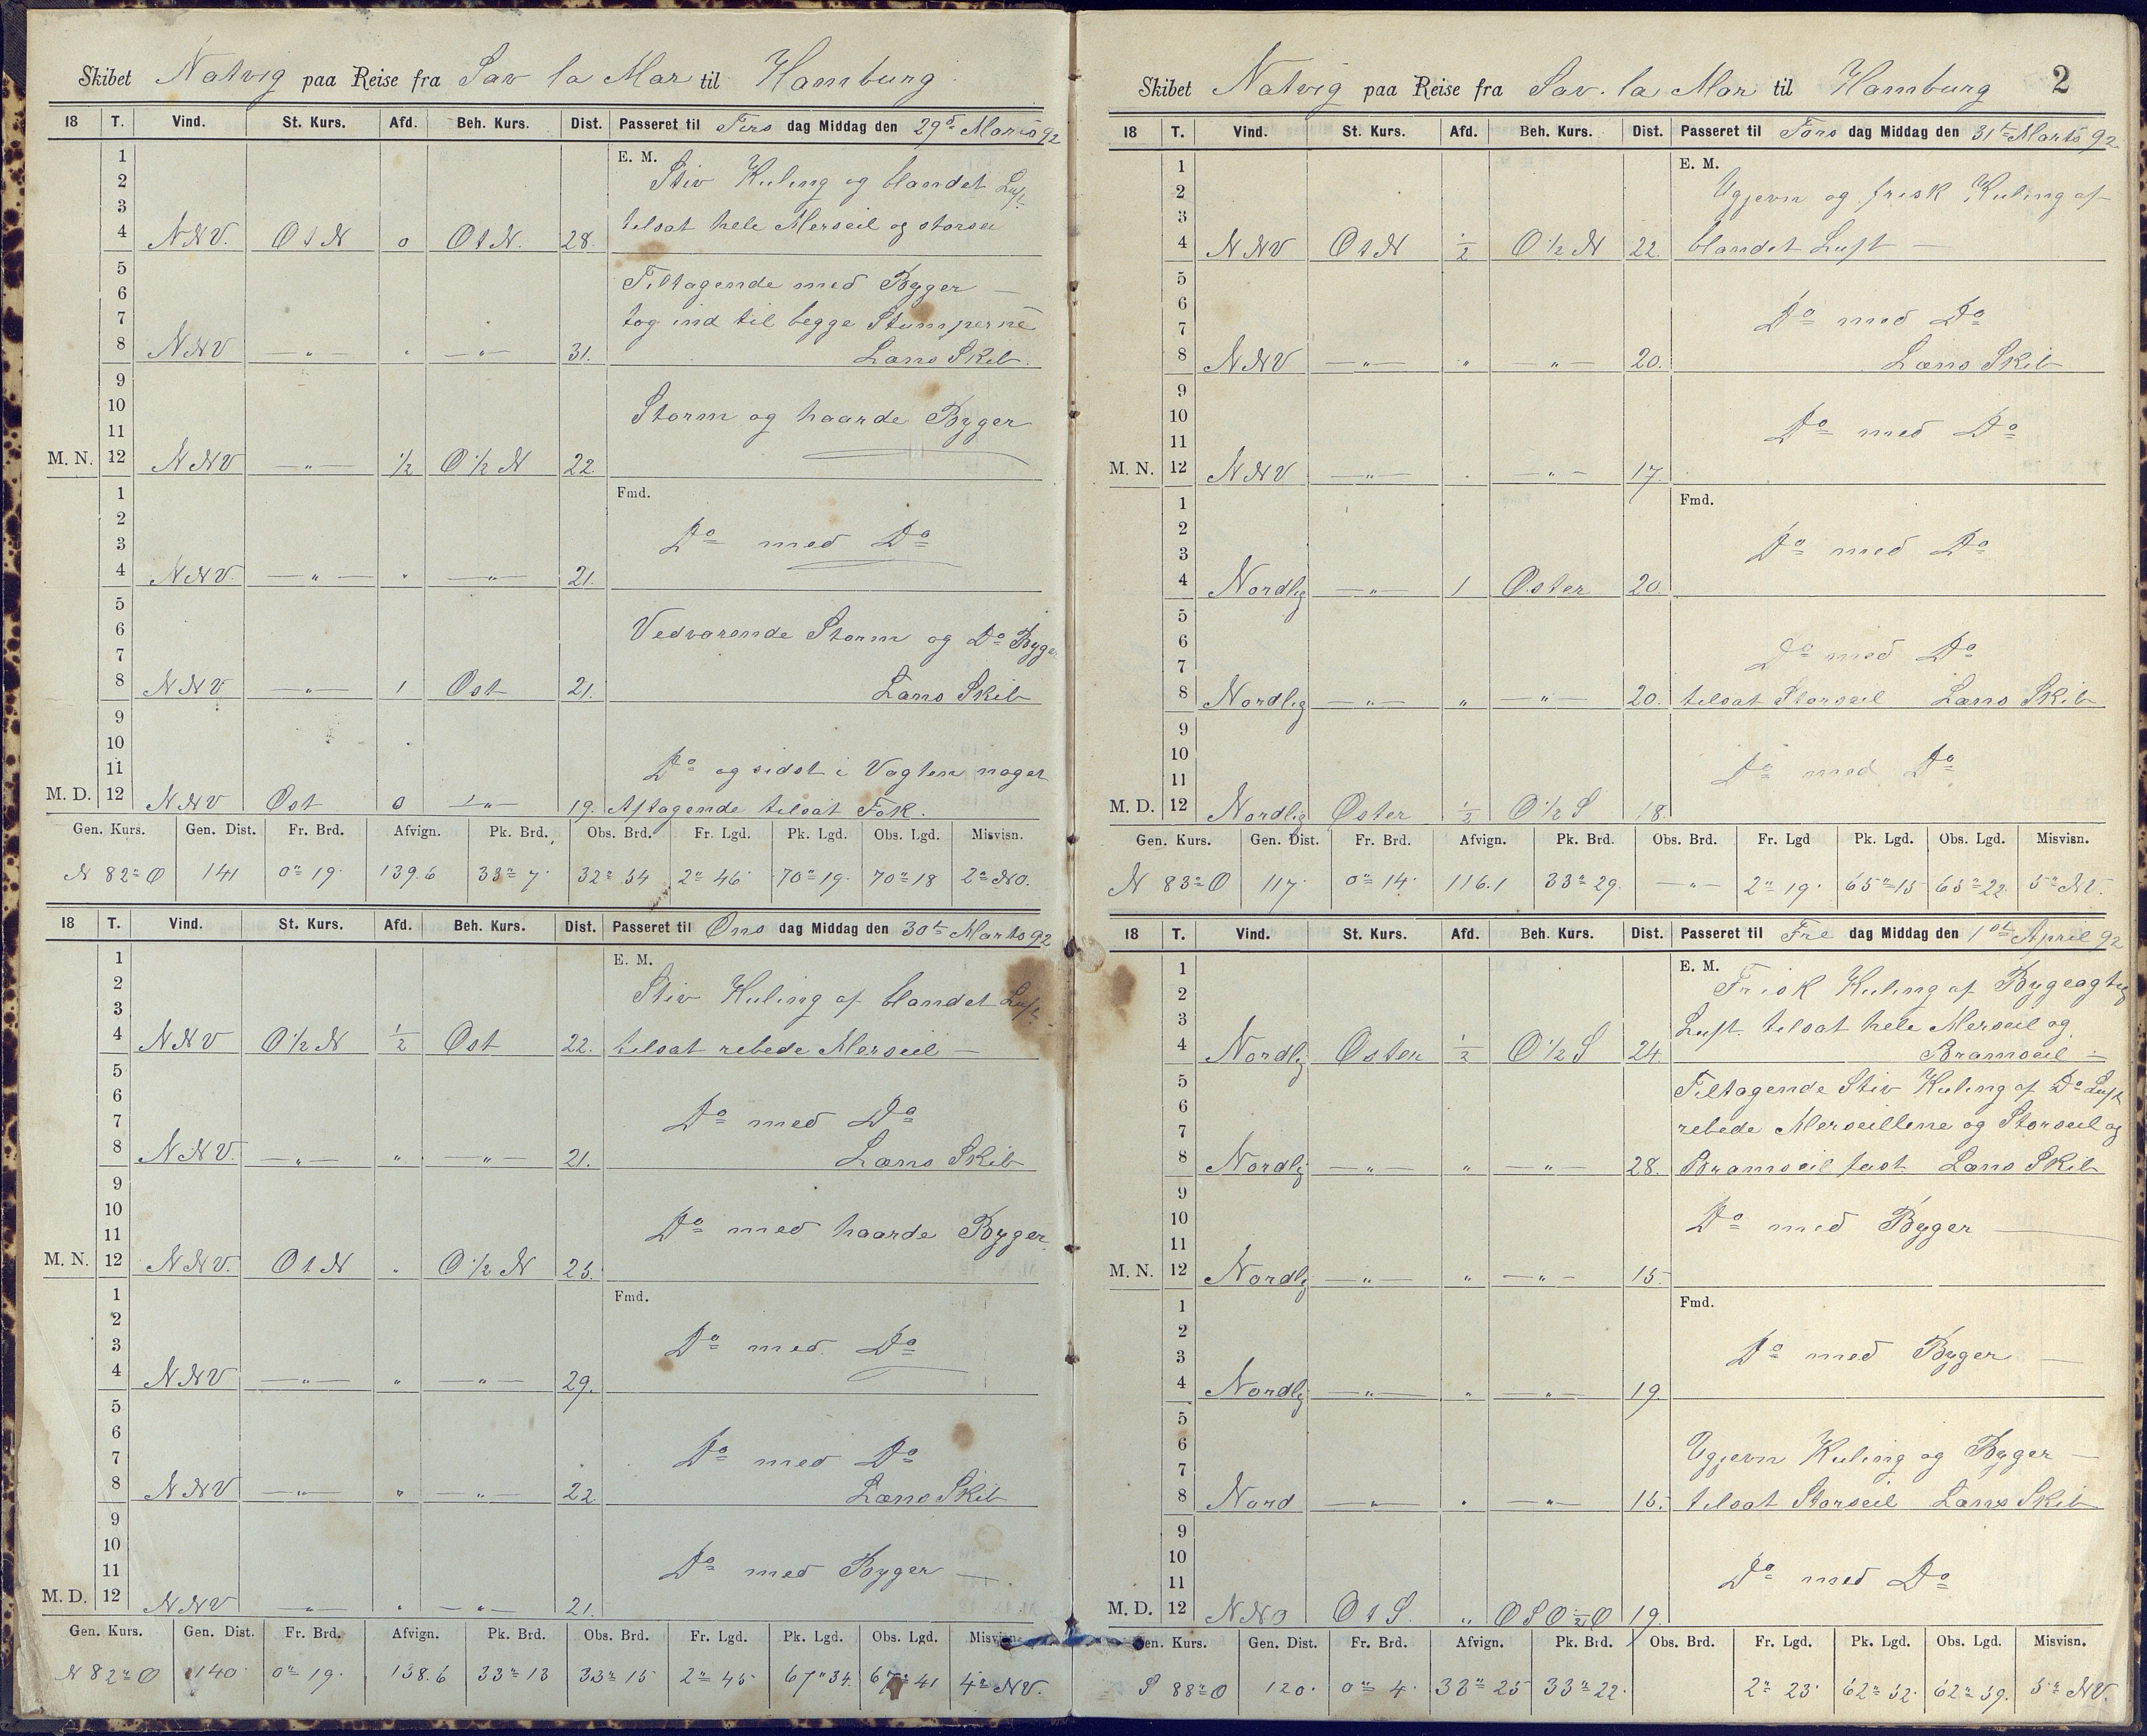 Skibet Natvig paa Reise fra Sav la Mar til Hamburg
18 T. Vind. St. Kurs. Afd. Beh. Kurs. Dist. Passeret til Tirs dag Middag den 29de Marts 92
1 E. M.
2 Stiv Kuling og blandet Luft
3 tilsat hele Merseil og storseil
4 NNV. OtN 0 OtN. 28.
5 Tiltagende med Byger —
6
7 tog ind til begge Stumperne
8 NNV —„— „ —„— 31. Læns Skib.
9
10 Storm og haarde Byger
11
M. N. 12 NNV —„— ½ O½N 22.
1 Fmd.
2
3 Do med Do
4 NNV. —„— „ —„— 21.
5
6 Vedvarende Storm og Do Byger
7
8 NNV —„— 1 Ost 21. Læns Skib
9
10
11 Do og sidst i Vagten noget
M. D. 12 NNV Ost 0 —„— 19. Aftagende tilsat Fok.
Gen. Kurs. Gen. Dist. Fr. Brd. Afvign. Pk. Brd. Obs. Brd. Fr. Lgd. Pk. Lgd. Obs. Lgd. Misvisn.
N 82° O 141 0° 19. 139.6 33° 7. 32° 54 2° 46 70° 19. 70° 18 2° NO.
18 T. Vind. St. Kurs. Afd. Beh. Kurs. Dist. Passeret til Ons dag Middag den 30te Marts 92
1 E. M.
2 Stiv Kuling af blandet Luft
3
4 NNV O½N ½ Ost 22. tilsat rebede Merseil —
5
6
7 Do med Do
8 NNV. —„— „ —„— 21. Læns Skib
9
10 Do med haarde Byger
11
M. N. 12 NNV. OtN „ O½N 25.
1 Fmd.
2
3 Do med Do
4 NNV —„— „ —„— 29.
5
6
7 Do med Do
8 NNV —„— „ —„— 22 Læns Skib
9
10
11 Do med Byger —
M. D. 12 NNV —„— „ —„— 21.
Gen. Kurs. Gen. Dist. Fr. Brd. Afvign. Pk. Brd. Obs. Brd. Fr. Lgd. Pk. Lgd. Obs. Lgd. Misvisn.
N 82° O 140 0° 19. 138.6 33° 13 33° 15 2° 45 67° 34. 67° 41 4° NV.
Skibet Natvig paa Reise fra Sav. la Mar til Hamburg 2
18 T. Vind. St. Kurs. Afd. Beh. Kurs. Dist. Passeret til Tors dag Middag den 31te Marts 92
1 E. M.
2 Ugjevn og frisk Kuling af
3
4 NNV OtN ½ O½N 22. blandet Luft —
5
6 Do med Do
7
8 NNV —„— „ —„— 20. Læns Skib
9
10 Do med Do
11
M. N. 12 NNV —„— „ —„— 17.
1 Fmd.
2
3 Do med Do
4 Nordlig —„— 1 Oster 20.
5
6 Do med Do
7
8 Nordlig —„— „ —„— 20. tilsat Storseil Læns Skib
9
10 Do med Do
11
M. D. 12 Nordlig Oster ½ O½S 18.
Gen. Kurs. Gen. Dist. Fr. Brd. Afvign. Pk. Brd. Obs. Brd. Fr. Lgd Pk. Lgd. Obs. Lgd. Misvisn.
N 83° O 117. 0° 14. 116.1 33° 29. —„— 2° 19. 65° 15 65° 22. 5° NV.
18 T. Vind. St. Kurs. Afd. Beh. Kurs. Dist. Passeret til Fre dag Middag den 1ste April 92
1 E. M. Frisk Kuling af Bygeagtig
2
3 Luft tilsat hele Merseil og
4 Nordlig Oster ½ O½S 24. Bramseil —
5 Tiltagende Stiv Kuling af Do Luft
6
7 rebede Merseillene og Storseil og
8 Nordlig —„— „ —„— 28. Bramseil fast Læns Skib
9
10 Do med Byger —
11
M. N. 12 Nordlig —„— „ —„— 15.
1 Fmd.
2
3 Do med Byger —
4 Nordlig —„— „ —„— 19.
5
6 Ugjevn Kuling og Byger —
7
8 Nord —„— „ —„— 15. tilsat Storseil Læns Skib
9
10
11 Do med Do
M. D. 12 NNO OtS. „ OSO½O 19.
Gen. Kurs. Gen. Dist. Fr. Brd. Afvign. Pk. Brd. Obs. Brd. Fr. Lgd. Pk. Lgd. Obs. Lgd. Misvisn.
S 88° O 120. 0° 4. 33° 25 33° 22. 2° 23. 62° 52. 62° 59. 5° NV.